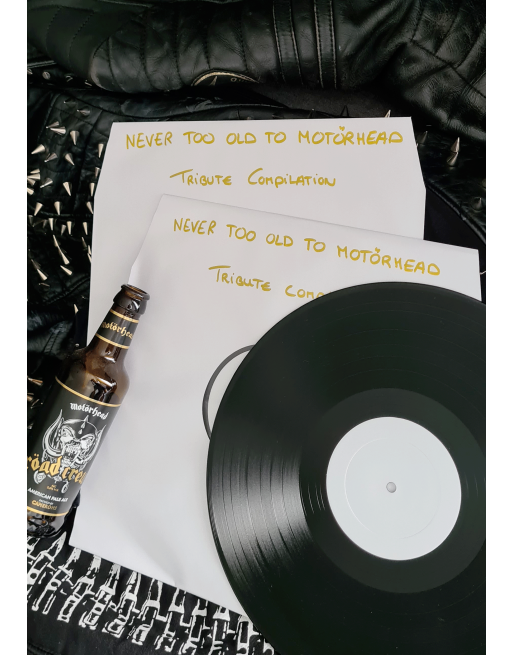 NEVER TOO OLD TO MOTÖRHEAD
TRIBUTE COMPILATION
NEVER TOO OLD TO MOTÖRHEAD
TRIBUTE COMP
motörhead
motörhead
röad crew
AMERICAN PALE ALE
CAMERONS